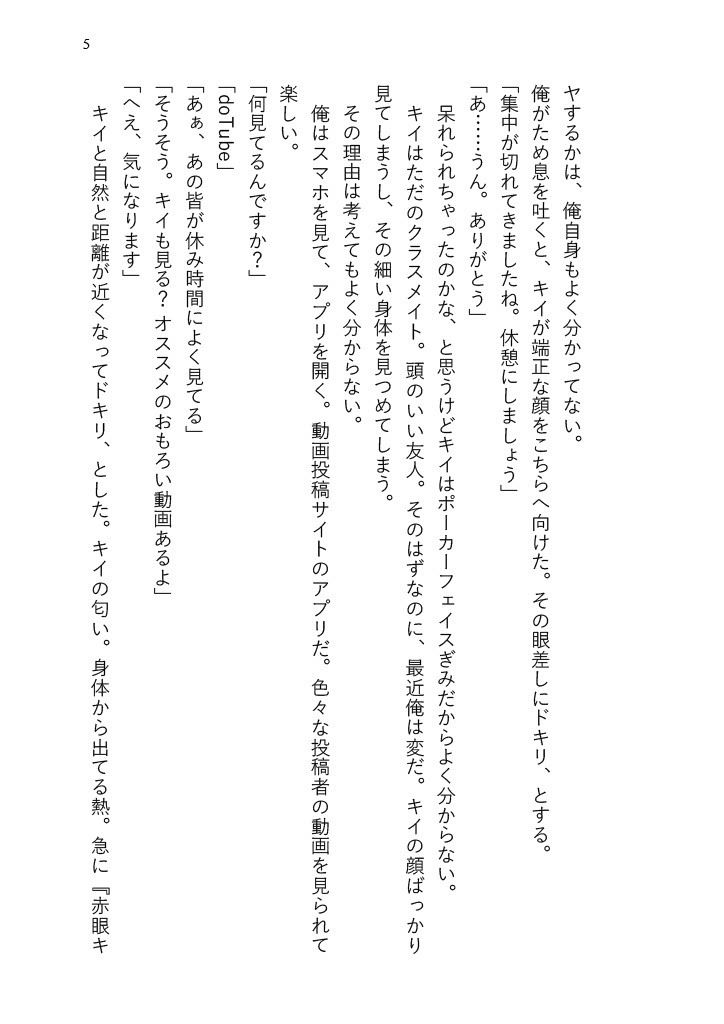 5
ヤするかは、俺自身もよく分かってない。
俺がため息を吐くと、キイが端正な顔をこちらへ向けた。その眼差しにドキリ、とする。
「集中が切れてきましたね。休憩にしましょう」
「あ……うん。ありがとう」
呆れられちゃったのかな、と思うけどキイはポーカーフェイスぎみだからよく分からない。
キイはただのクラスメイト。頭のいい友人。そのはずなのに、最近俺は変だ。キイの顔ばっかり
見てしまうし、その細い身体を見つめてしまう。
その理由は考えてもよく分からない。
俺はスマホを見て、アプリを開く。動画投稿サイトのアプリだ。色々な投稿者の動画を見られて
楽しい。
「何見てるんですか？」
「doTube」
「あぁ、あの皆が休み時間によく見てる」
「そうそう。キイも見る？ オススメのおもろい動画あるよ」
「へえ、気になります」
キイと自然と距離が近くなってドキリ、とした。キイの匂い。身体から出てる熱。急に『赤眼キ